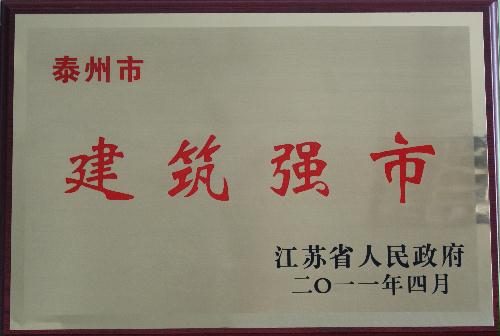 泰州市
建筑强市
江苏省人民政府
二〇一一年四月